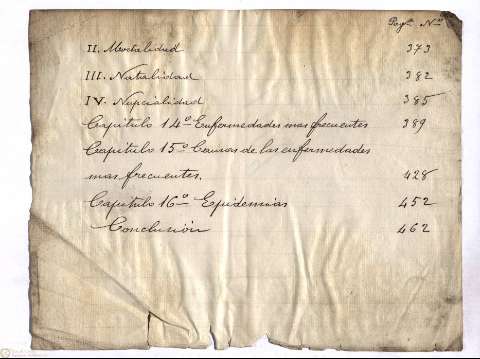 Pags. Nos.
II. Mortalidad 373
III. Natalidad 382
IV. Nupcialidad 385
Capitulo 14º Enfermedades mas frecuentes 389
Capitulo 15º Causas de las enfermedades
mas frecuentes. 428
Capitulo 16º Epidemias 452
Conclusión 462